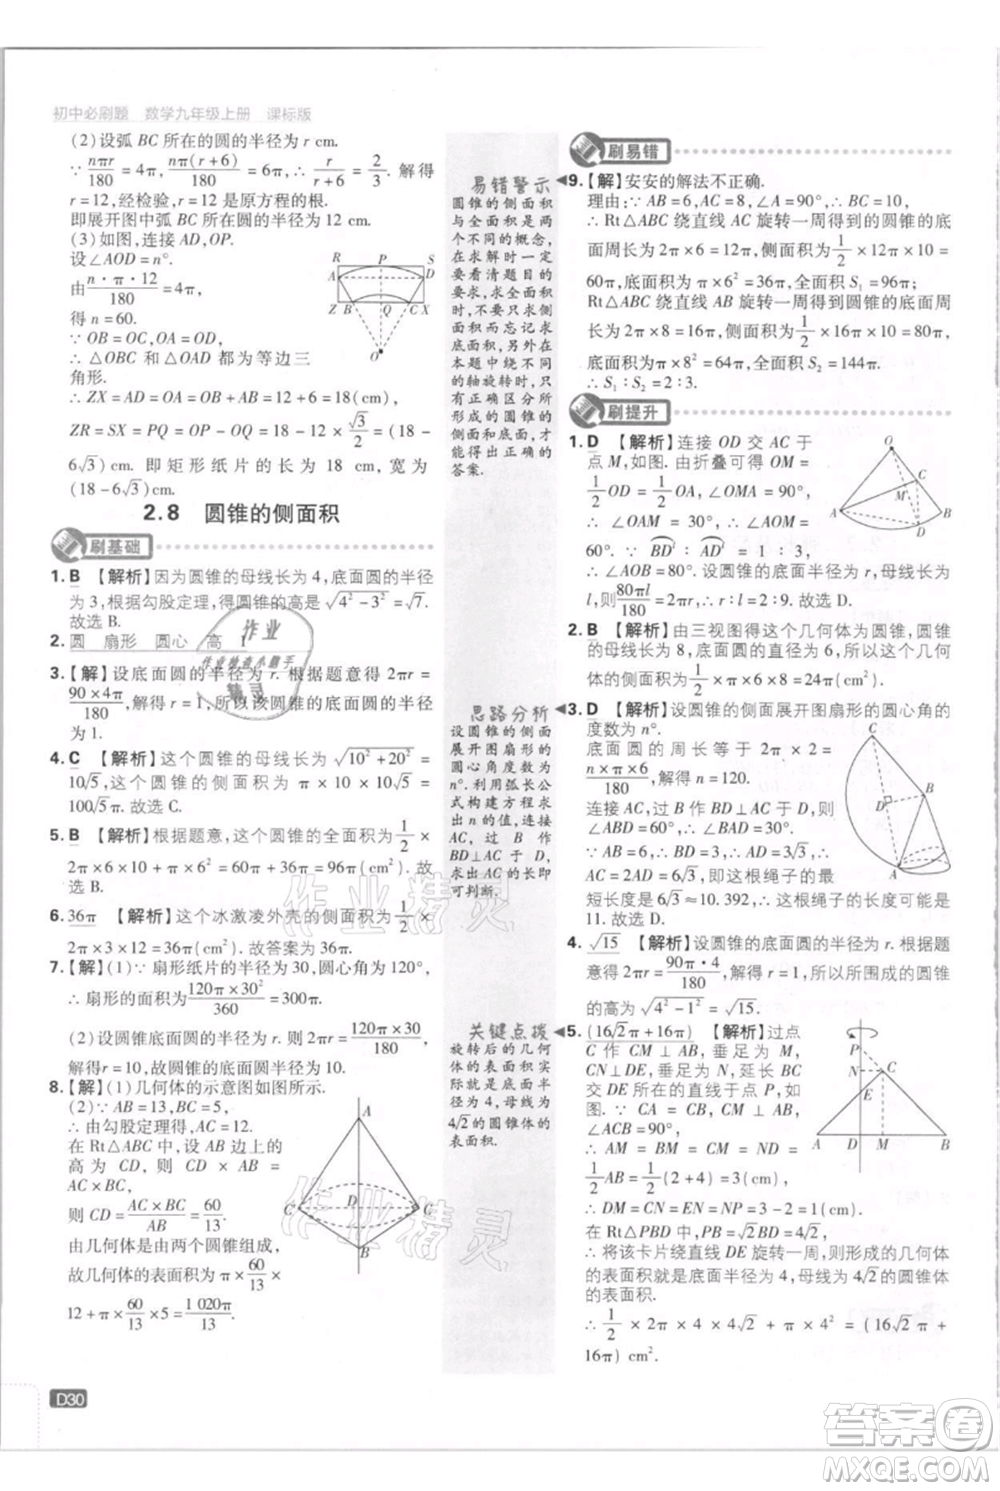 初中必刷题 数学九年级上册 课标版
(2)设弧 BC 所在的圆的半径为 r cm.
∵ nπr/180 = 4π, nπ(r+6)/180 = 6π, ∴ r/(r+6) = 2/3. 解得
r=12,经检验,r=12 是原方程的根.
即展开图中弧 BC 所在圆的半径为 12 cm.
(3)如图,连接 AD,OP.
设∠AOD=n°.
由 n·π·12/180 = 4π,
得 n=60.
∵ OB=OC,OA=OD,
∴ △OBC 和△OAD 都为等边三
角形.
∴ ZX=AD=OA=OB+AB=12+6=18(cm),
ZR=SX=PQ=OP-OQ=18-12×√3/2=(18-
6√3)cm. 即矩形纸片的长为 18 cm,宽为
(18-6√3)cm.
R P S
A D
Z B Q C X
O
2.8 圆锥的侧面积
刷基础
1. B 【解析】因为圆锥的母线长为 4,底面圆的半径
为 3,根据勾股定理,得圆锥的高是√(4²-3²)=√7.
故选 B.
2. 圆 扇形 圆心 高 1
3.【解】设底面圆的半径为 r. 根据题意得 2πr=
90×4π/180,解得 r=1,所以该圆锥的底面圆的半径
为 1.
4. C 【解析】这个圆锥的母线长为√(10²+20²)=
10√5,这个圆锥的侧面积为 π×10×10√5=
100√5π. 故选 C.
5. B 【解析】根据题意,这个圆锥的全面积为 1/2×
2π×6×10+π×6²=60π+36π=96π(cm²). 故
选 B.
6. 36π 【解析】这个冰激凌外壳的侧面积为 1/2×
2π×3×12=36π(cm²). 故答案为 36π.
7.【解】(1)∵ 扇形纸片的半径为 30,圆心角为 120°,
∴ 扇形的面积为 120π×30²/360=300π.
(2)设圆锥底面圆的半径为 r. 则 2πr=120π×30/180,
解得 r=10.
8.【解】(1)几何体的示意图如图所示.
(2)∵ AB=13,BC=5,
∴ 由勾股定理,得 AC=12.
在 Rt△ABC 中,设 AB 边上的
高为 CD,
则 CD=AC×BC/AB=60/13.
由几何体是由两个圆锥组成,
故几何体的表面积为 π×60/13
×12+60/13×π×5=1 020π/13.
A
C D C
B
D30
易错警示
圆锥的侧面积
与全面积是两
个不同的概念,
在求解时一定
要看清题目的
要求,圆锥的
全面积时不要
只求侧面积而忘记求
底面积.
思路分析
设圆锥的侧面
展开图扇形的
圆心角度数为
n°. 利用弧长公
式构建方程求
出 n 的值,连接
AC,过 B 作
BD⊥AC 于 D,
求出 BD 的长即
可判断.
关键点拨
旋转后的几何
体的表面积实
际就是底面半
径为 4,母线为
4√2的圆锥体的
表面积.
刷易错
9.【解】安安的解法不正确.
理由:∵ AB=6,AC=8,∠A=90°,∴ BC=10,
∴ Rt△ABC 绕直线 AC 旋转一周得到的圆锥的底
面周长为 2π×6=12π,侧面积为 1/2×12π×10=
60π,底面积为 π×6²=36π,全面积 S₁=96π;
Rt△ABC 绕直线 AB 旋转一周得到圆锥的底面周
长为 2π×8=16π,侧面积为 1/2×16π×10=80π,
底面积为 π×8²=64π,全面积 S₂=144π.
∴ S₁∶S₂=2∶3.
刷提升
1. D 【解析】连接 OD 交 AC 于
点 M,如图. 由折叠可得 OM=
1/2OD=1/2OA,∠OMA=90°,
∴ ∠OAM=30°,∴ ∠AOM=
60°. ∵ BD∶AD=1∶3,
∴ ∠AOB=80°. 设圆锥的底面半径为 r,母线长为
l,80πl/180=2πr,∴ r∶l=2∶9. 故选 D.
O
C
M
A B
D
2. B 【解析】由三视图得这个几何体为圆锥,圆锥
的母线长为 8,底面圆的直径为 6,所以这个几何
体的侧面积为 1/2×π×6×8=24π(cm²). 故选 B.
3. D 【解析】设圆锥的侧面展开图扇形的圆心角的
度数为 n°.
底面圆的周长等于 2π×2=
n×π×6/180,解得 n=120.
连接 AC,过 B 作 BD⊥AC 于 D,则
∠ABD=60°,∴ ∠BAD=30°.
∵ AB=6,∴ BD=3,∴ AD=3√3,
AC=2AD=6√3,∴ 这根绳子的最
短长度是 6√3≈10.392,故这根绳子的长度可能是
11. 故选 D.
C
D B
A
4. √15 【解析】设圆锥的底面圆的半径为 r. 根据题
意得 2πr=90π·4/180,解得 r=1,所以所围成的圆锥
的高为√(4²-1²)=√15.
5. (16√2π+16π) 【解析】过点
C 作 CM⊥AB,垂足为 M,
CN⊥DE 所在的直线于点 P,如
图. ∵ CA=CB,CM⊥AB,
∠ACB=90°,
∴ AM=BM=CM=ND=
1/2AB=1/2×(2+4)=3(cm),
∴ DM=CN=EN=PN=1,
在 Rt△PBD 中,PB=√2BD=4√2,
∴ 将该卡片绕直线 DE 旋转一周,
则圆锥底面半径为 4,母线为 4√2的圆锥体
的表面积.
∴ 1/2×2π×4×4√2+π×4²=(16√2π+
16π)cm².
P
N C
E
A D M B
作业精灵
作业检查小助手
答案圈
MXQE.COM